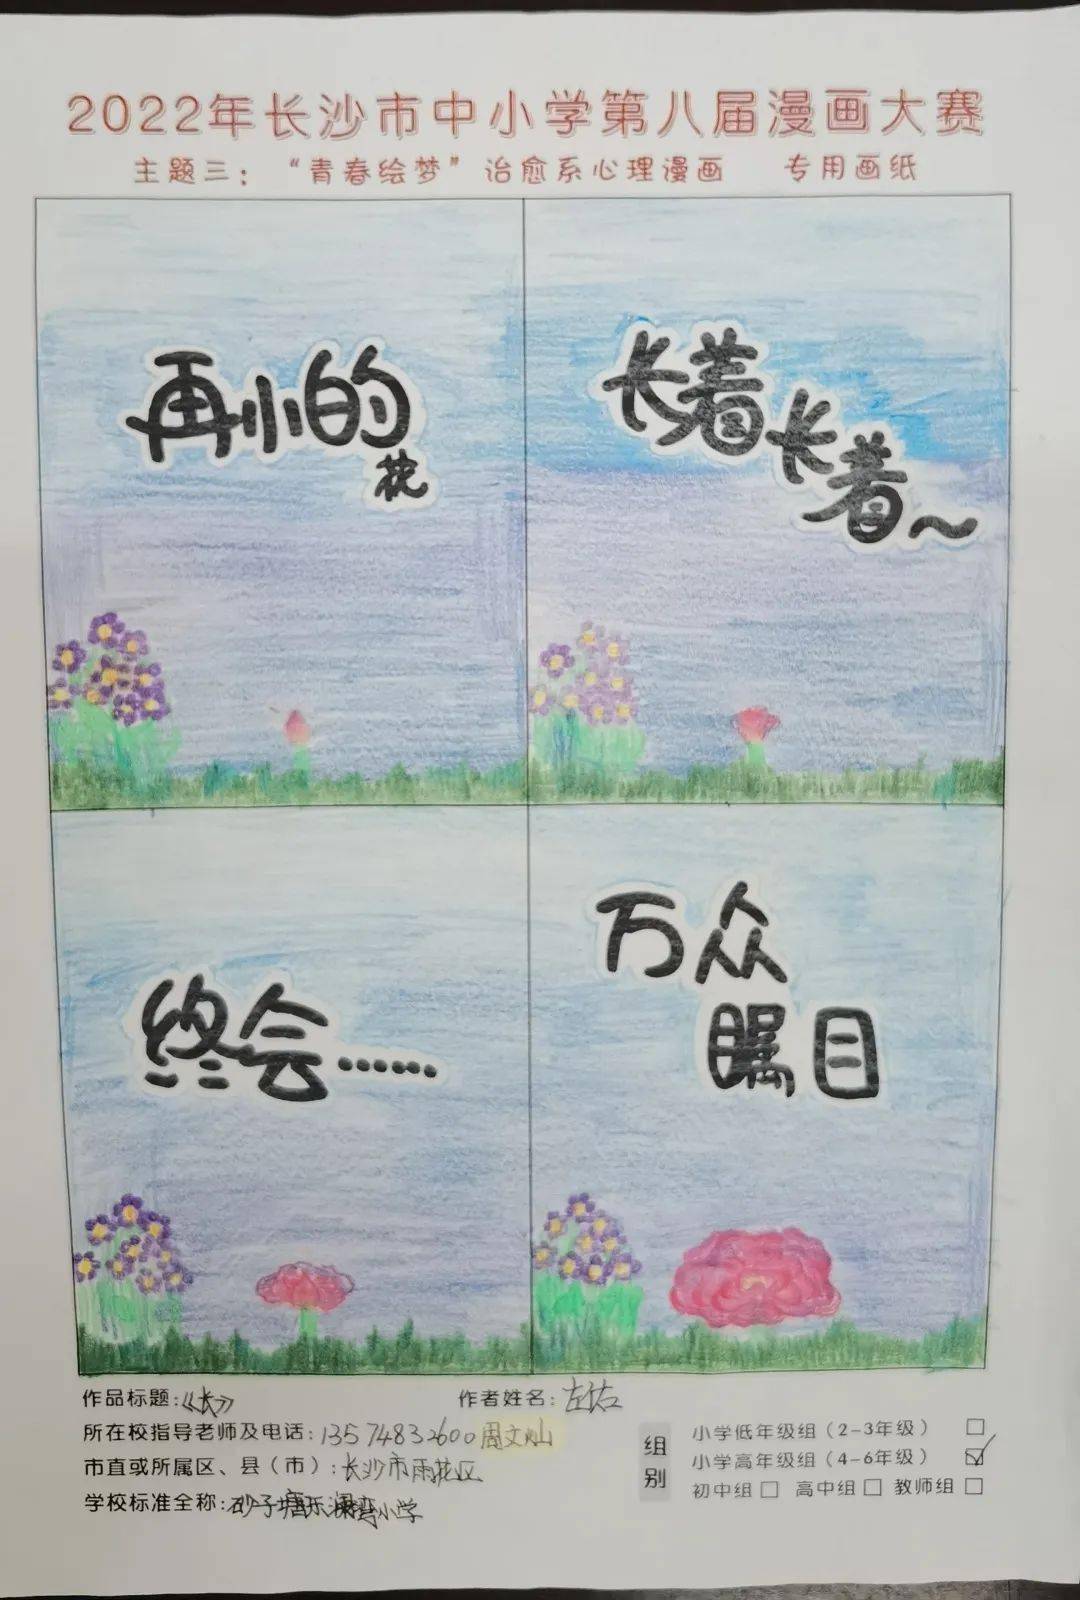 2022年长沙市中小学第八届漫画大赛
主题三：“青春绘梦”治愈系心理漫画 专用画纸
再小的
花
长着
长着~
终会……
万众
瞩目
作品标题:《长》
作者姓名:左佑
所在校指导老师及电话:13574832600周文灿
市直或所属区、县(市):长沙市雨花区
学校标准全称:砂子塘乐湖湾小学
组别
小学低年级组(2-3年级)□
小学高年级组(4-6年级)☑
初中组□ 高中组□ 教师组□